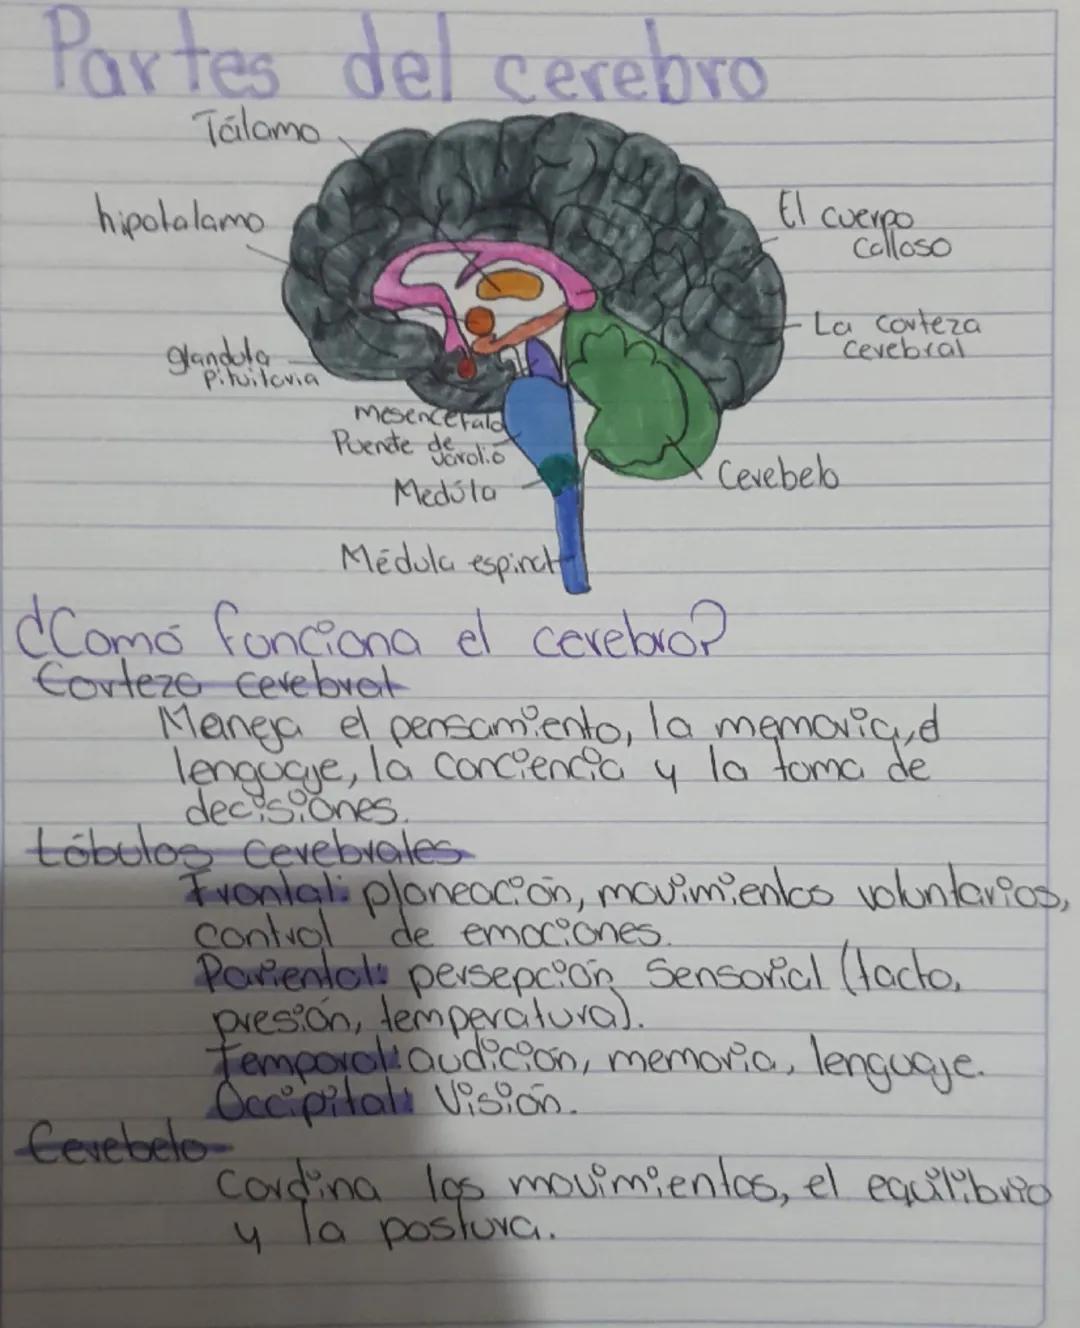 Partes del cerebro
Tálamo
hipotalamo
El cuerpo
calloso
La corteza
cerebral
glandula
Pituitaria
mesencefalo
Puente de
varolio
Medúla
Cerebelo
Médula espinal
¿Comó funciona el cerebro?
Corteza cerebral
Maneja el pensamiento, la memoria, el
lenguaje, la conciencia y la toma de
decisiones.
Lóbulos cerebrales
Frontal: planeación, movimientos voluntarios,
control de emociones.
Pariental: persepción Sensorial (tacto,
presión, temperatura).
Temporal: audición, memoria, lenguaje.
Occipital: Visión.
Cerebelo
Cordina los movimientos, el equilibrio
y la postura.